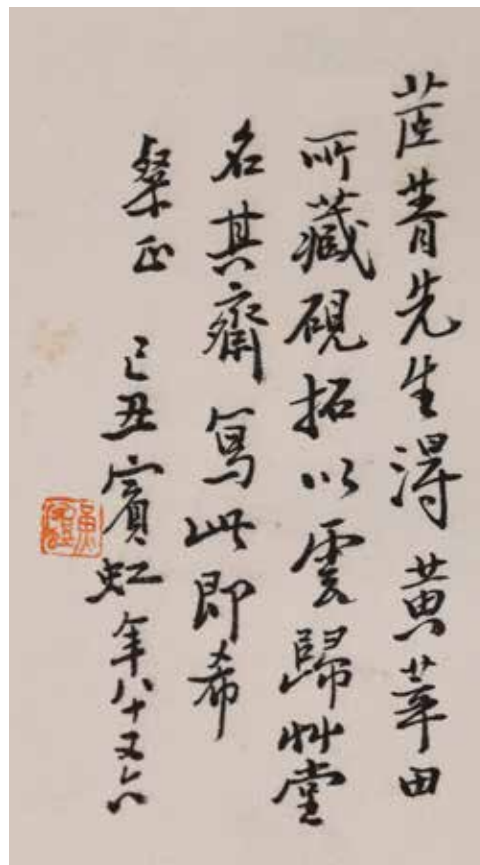 茝菁先生得黄莘田
所藏硯拓以雲歸艸堂
名其齋寫此即希
粲正 己丑賓虹年八十又六
黃賓虹